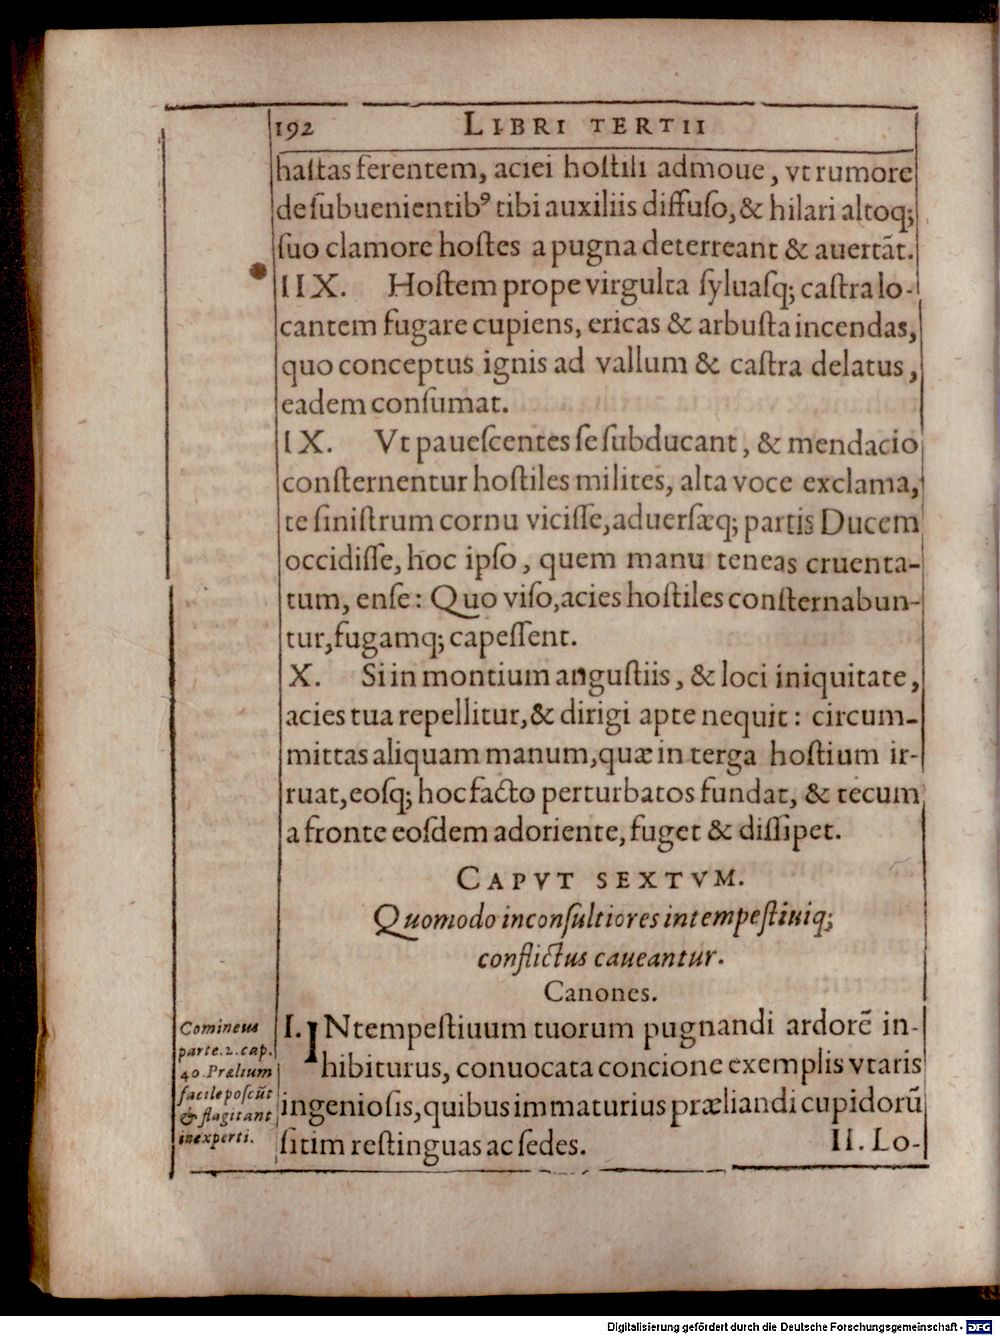 192 LIBRI TERTII
haſtas ferentem, aciei hoſtili admoue, vt rumore
de ſubuenientibꝰ tibi auxiliis diffuſo, & hilari altoq;
ſuo clamore hoſtes a pugna deterreant & auertāt.
IIX. Hoſtem prope virgulta ſyluaſq; caſtra lo-
cantem fugare cupiens, ericas & arbuſta incendas,
quo conceptus ignis ad vallum & caſtra delatus,
eadem conſumat.
IX. Vt paueſcentes ſe ſubducant, & mendacio
conſternentur hoſtiles milites, alta voce exclama,
te ſiniſtrum cornu viciſſe, aduerſæq; partis Ducem
occidiſſe, hoc ipſo, quem manu teneas cruenta-
tum, enſe: Quo viſo, acies hoſtiles conſternabun-
tur, fugamq; capeſſent.
X. Si in montium anguſtiis, & loci iniquitate,
acies tua repellitur, & dirigi apte nequit: circum-
mittas aliquam manum, quæ in terga hoſtium ir-
ruat, eoſq; hoc facto perturbatos fundat, & tecum
a fronte eoſdem adoriente, fuget & diſſipet.
CAPVT SEXTVM.
Quomodo inconſultiores intempeſtiuiq;
conflictus caueantur.
Canones.
I. INtempeſtiuum tuorum pugnandi ardorē in-
hibiturus, conuocata concione exemplis vtaris
ingenioſis, quibus immaturius præliandi cupidorū
ſitim reſtinguas ac ſedes.
II. Lo-
Comineus
parte. 2. cap.
40. Prælium
facile poſcūt
& flagitant
inexperti.
Digitalisierung gefördert durch die Deutsche Forschungsgemeinschaft - DFG